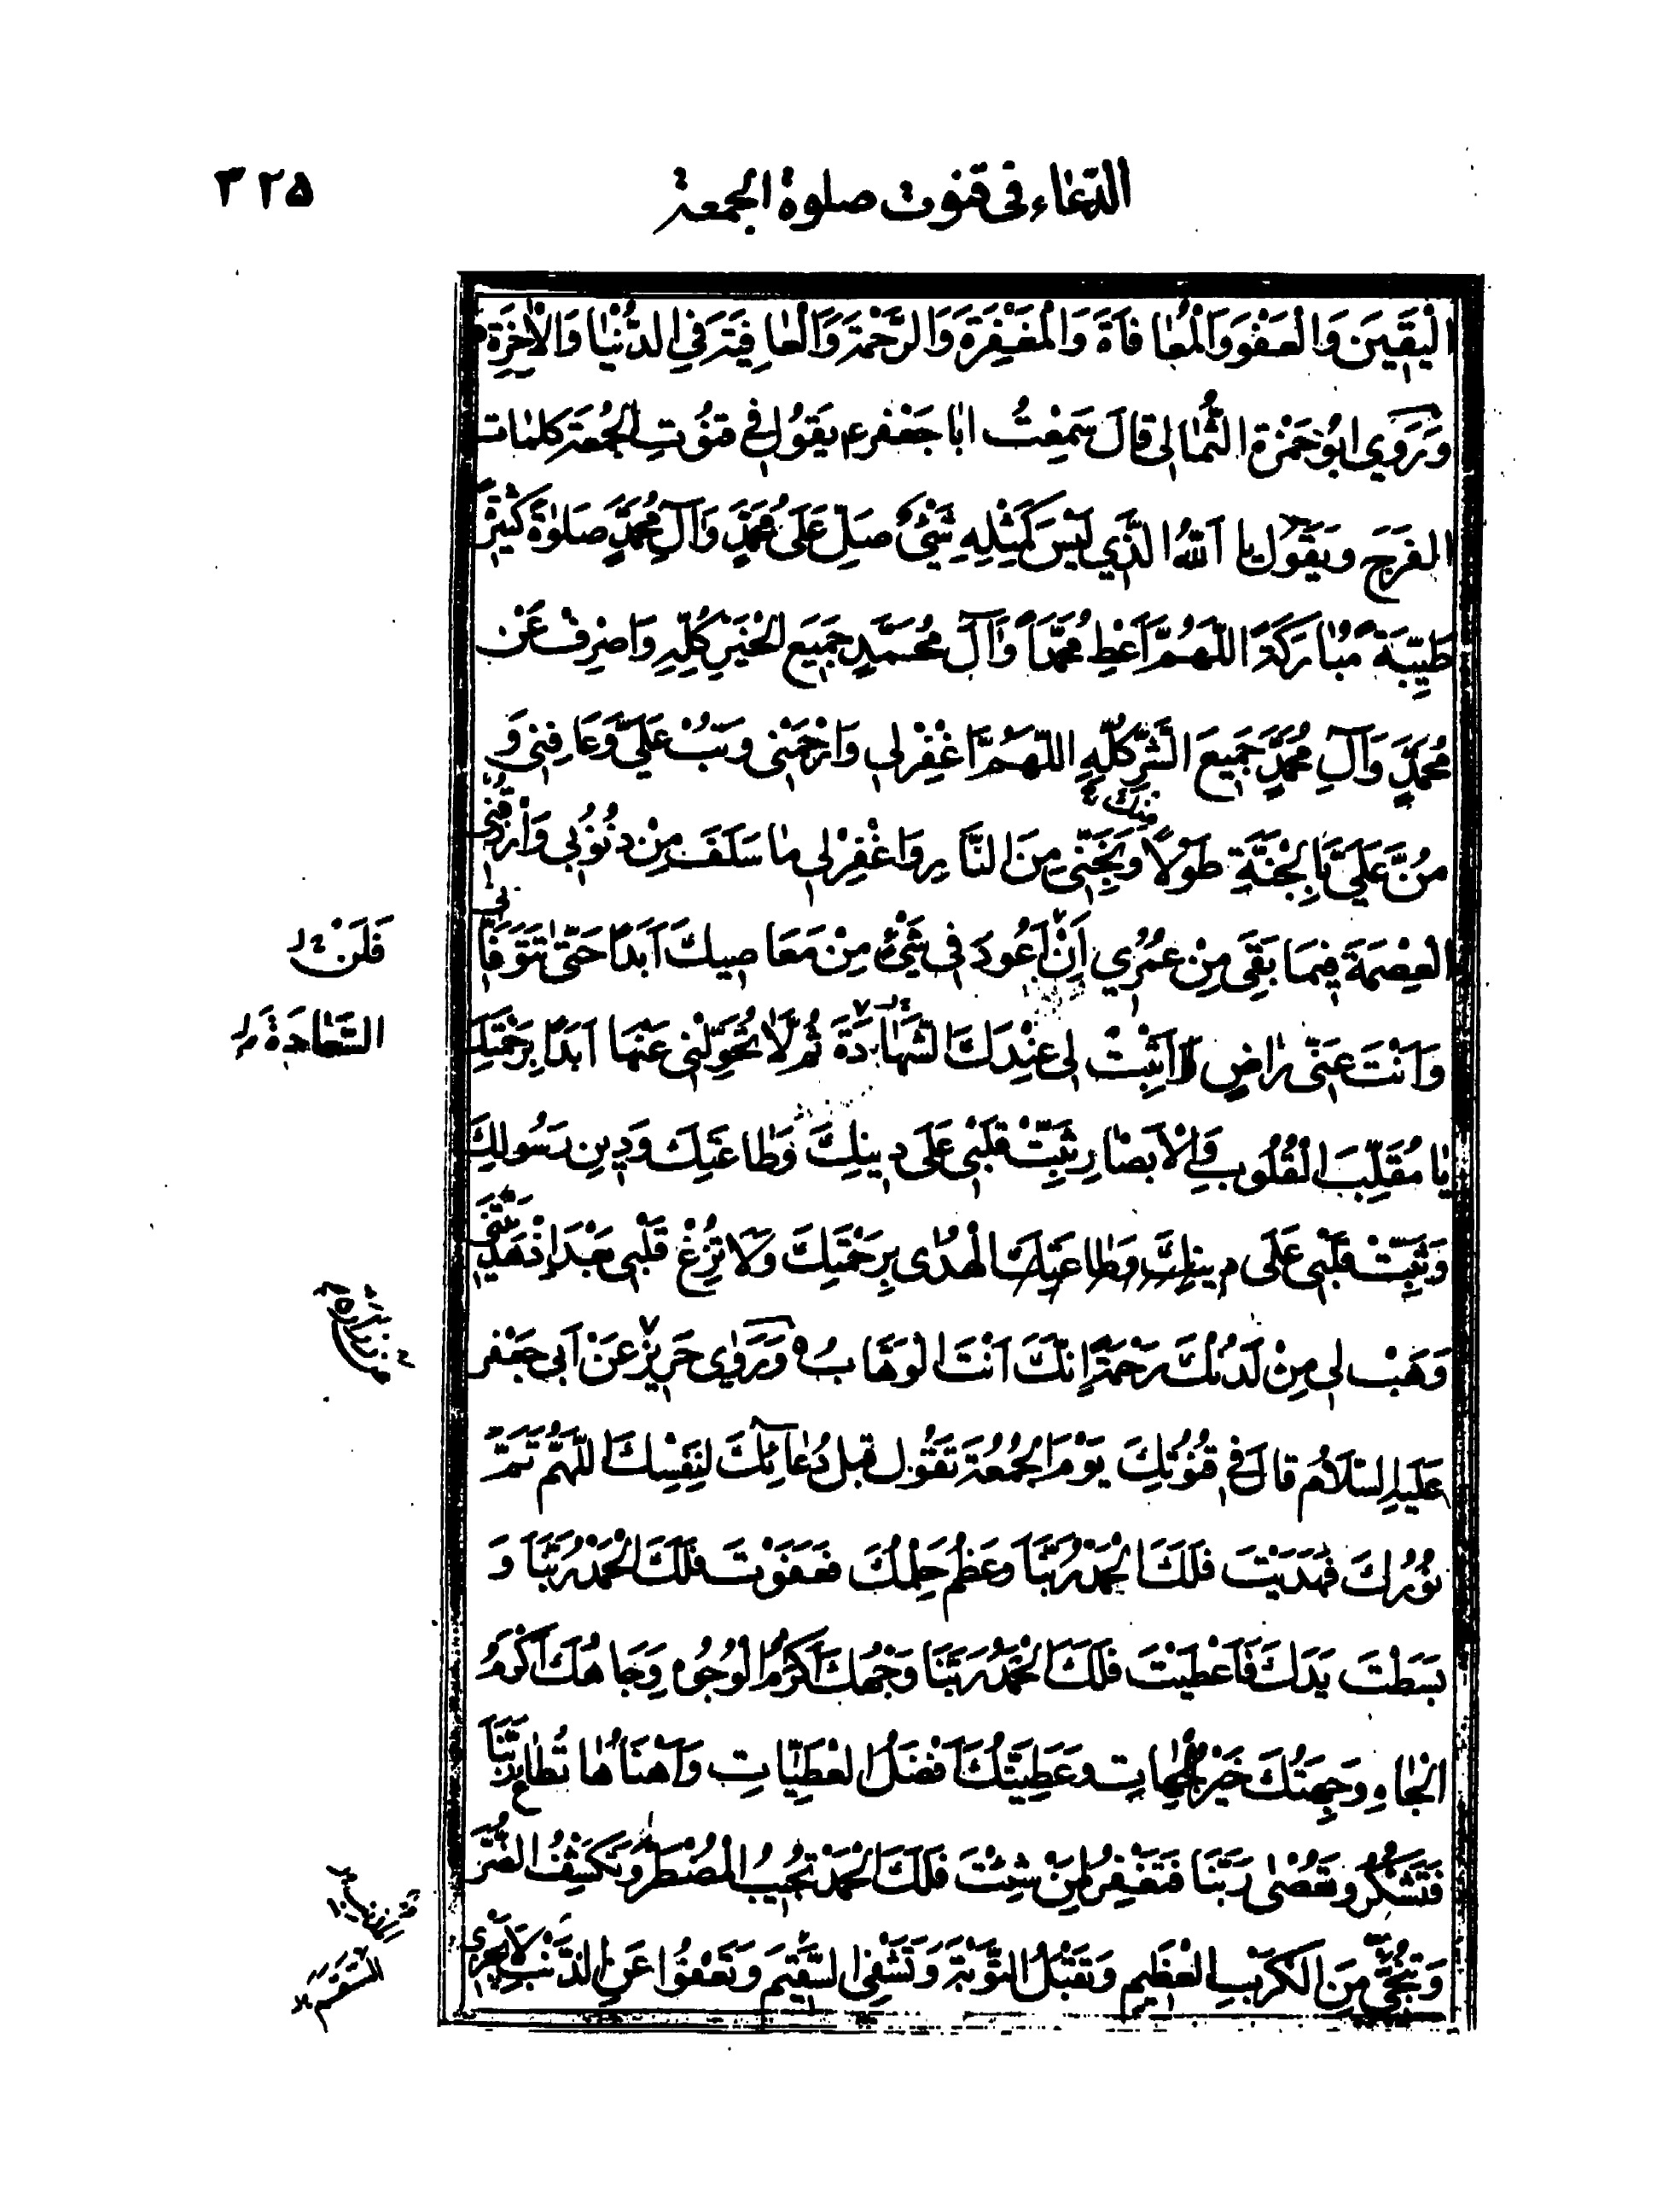 الدّعاء فى قنوت صلوة الجمعة
٣٢۵
الْيَقينَ وَالْعَفْوَ وَالْمُعافاةَ وَالْمَغْفِرَةَ وَالرَّحْمَةَ وَالْعافِيَةَ فِي الدُّنْيا وَالْاخِرَةِ
وَرَوى ابُو حَمْزة الثُّمالي قالَ سَمِعْتُ ابا جَعْفر ع يَقوُل في قنوُتِ الجُمعَة كَلِمات
الفَرَجِ ويَقوُل يا اَللهُ الَّذي لَيْسَ كَمِثْلِهِ شَيْءٌ صَلِّ عَلى مُحَمَّدٍ وَآلِ مُحَمَّدٍ صَلوٰةً كَثيرَةً
طَيِّبَةً مُبارَكَةً اللّهُمَّ اَعْطِ مُحَمَّداً وَآلَ مُحَمَّدٍ جَميعَ الْخَيْرِ كُلِّهِ وَاصْرِفْ عَنْ
مُحَمَّدٍ وَآلِ مُحَمَّدٍ جَميعَ الشَّرِّ كُلِّهِ اللّهُمَّ اغْفِرْ لي وَارْحَمْني وَتُبْ عَلَيَّ وَعافِني وَ
منك
مُنَّ عَلَيَّ بِالْجَنَّةِ طَوْلاً وَنَجِّني مِنَ النّارِ وَاغْفِرْ لي ما سَلَفَ مِنْ ذُنُوبي وَارْزُقْنِي
الْعِصْمَةَ فيما بَقِيَ مِنْ عُمُري اَنْ اَعُودَ في شَيْءٍ مِنْ مَعاصيكَ اَبَداً حَتّى تَتَوَفّاني
فَلَنْ
وَاَنْتَ عَنّي راضٍ وَاَثْبِتْ لي عِنْدَكَ الشَّهادَةَ ثُمَّ لا تُحَوِّلْني عَنْها اَبَداً بِرَحْمَتِكَ
السَّعادَةَ
يا مُقَلِّبَ الْقُلُوبِ وَالْاَبْصارِ ثَبِّتْ قَلْبي عَلى دينِكَ وَطاعَتِكَ وَدينِ رَسُولِكَ
وَثَبِّتْ قَلْبي عَلَى دينِكَ وَطاعَتِكَ الْهُدى بِرَحْمَتِكَ وَلا تُزِغْ قَلْبي بَعْدَ اِذْ هَدَيْتَني
وَهَبْ لي مِنْ لَدُنْكَ رَحْمَةً اِنَّكَ اَنْتَ الْوَهّابُ وَرَوى حَريز عَنْ اَبي جَعْفر
عن زرارة
عَلَيْهِ السَّلامُ قالَ في قُنُوتِكَ يَوْمَ الْجُمُعَةِ تَقُول قبل دُعائِكَ لِنَفْسِكَ اللّهُمَّ تَمَّ
نُورُكَ فَهَدَيْتَ فَلَكَ الْحَمْدُ رَبَّنا وَعَظُمَ حِلْمُكَ فَعَفَوْتَ فَلَكَ الْحَمْدُ رَبَّنا وَ
بَسَطْتَ يَدَكَ فَاَعْطَيْتَ فَلَكَ الْحَمْدُ رَبَّنا وَجْهُكَ اَكْرَمُ الْوُجُوهِ وَجاهُكَ اَكْرَمُ
الْجاهِ وَجِهَتُكَ خَيْرُ الْجِهاتِ وَعَطِيَّتُكَ اَفْضَلُ الْعَطِيّاتِ وَاَهْنَاُها تُطاعُ رَبَّنا
فَتَشْكُرُ وَتُعْصى رَبَّنا فَتَغْفِرُ لِمَنْ شِئْتَ فَلَكَ الْحَمْدُ تُجيبُ الْمُضْطَرَّ وَتَكْشِفُ الضُّرَّ
وَتُنَجّي مِنَ الْكَرْبِ الْعَظيمِ وَتَقْبَلُ التَّوْبَةَ وَتَشْفِي السَّقيمَ وَتَعْفُوا عَنِ الذَّنْبِ لا يَجْزي
السَّقَمَ